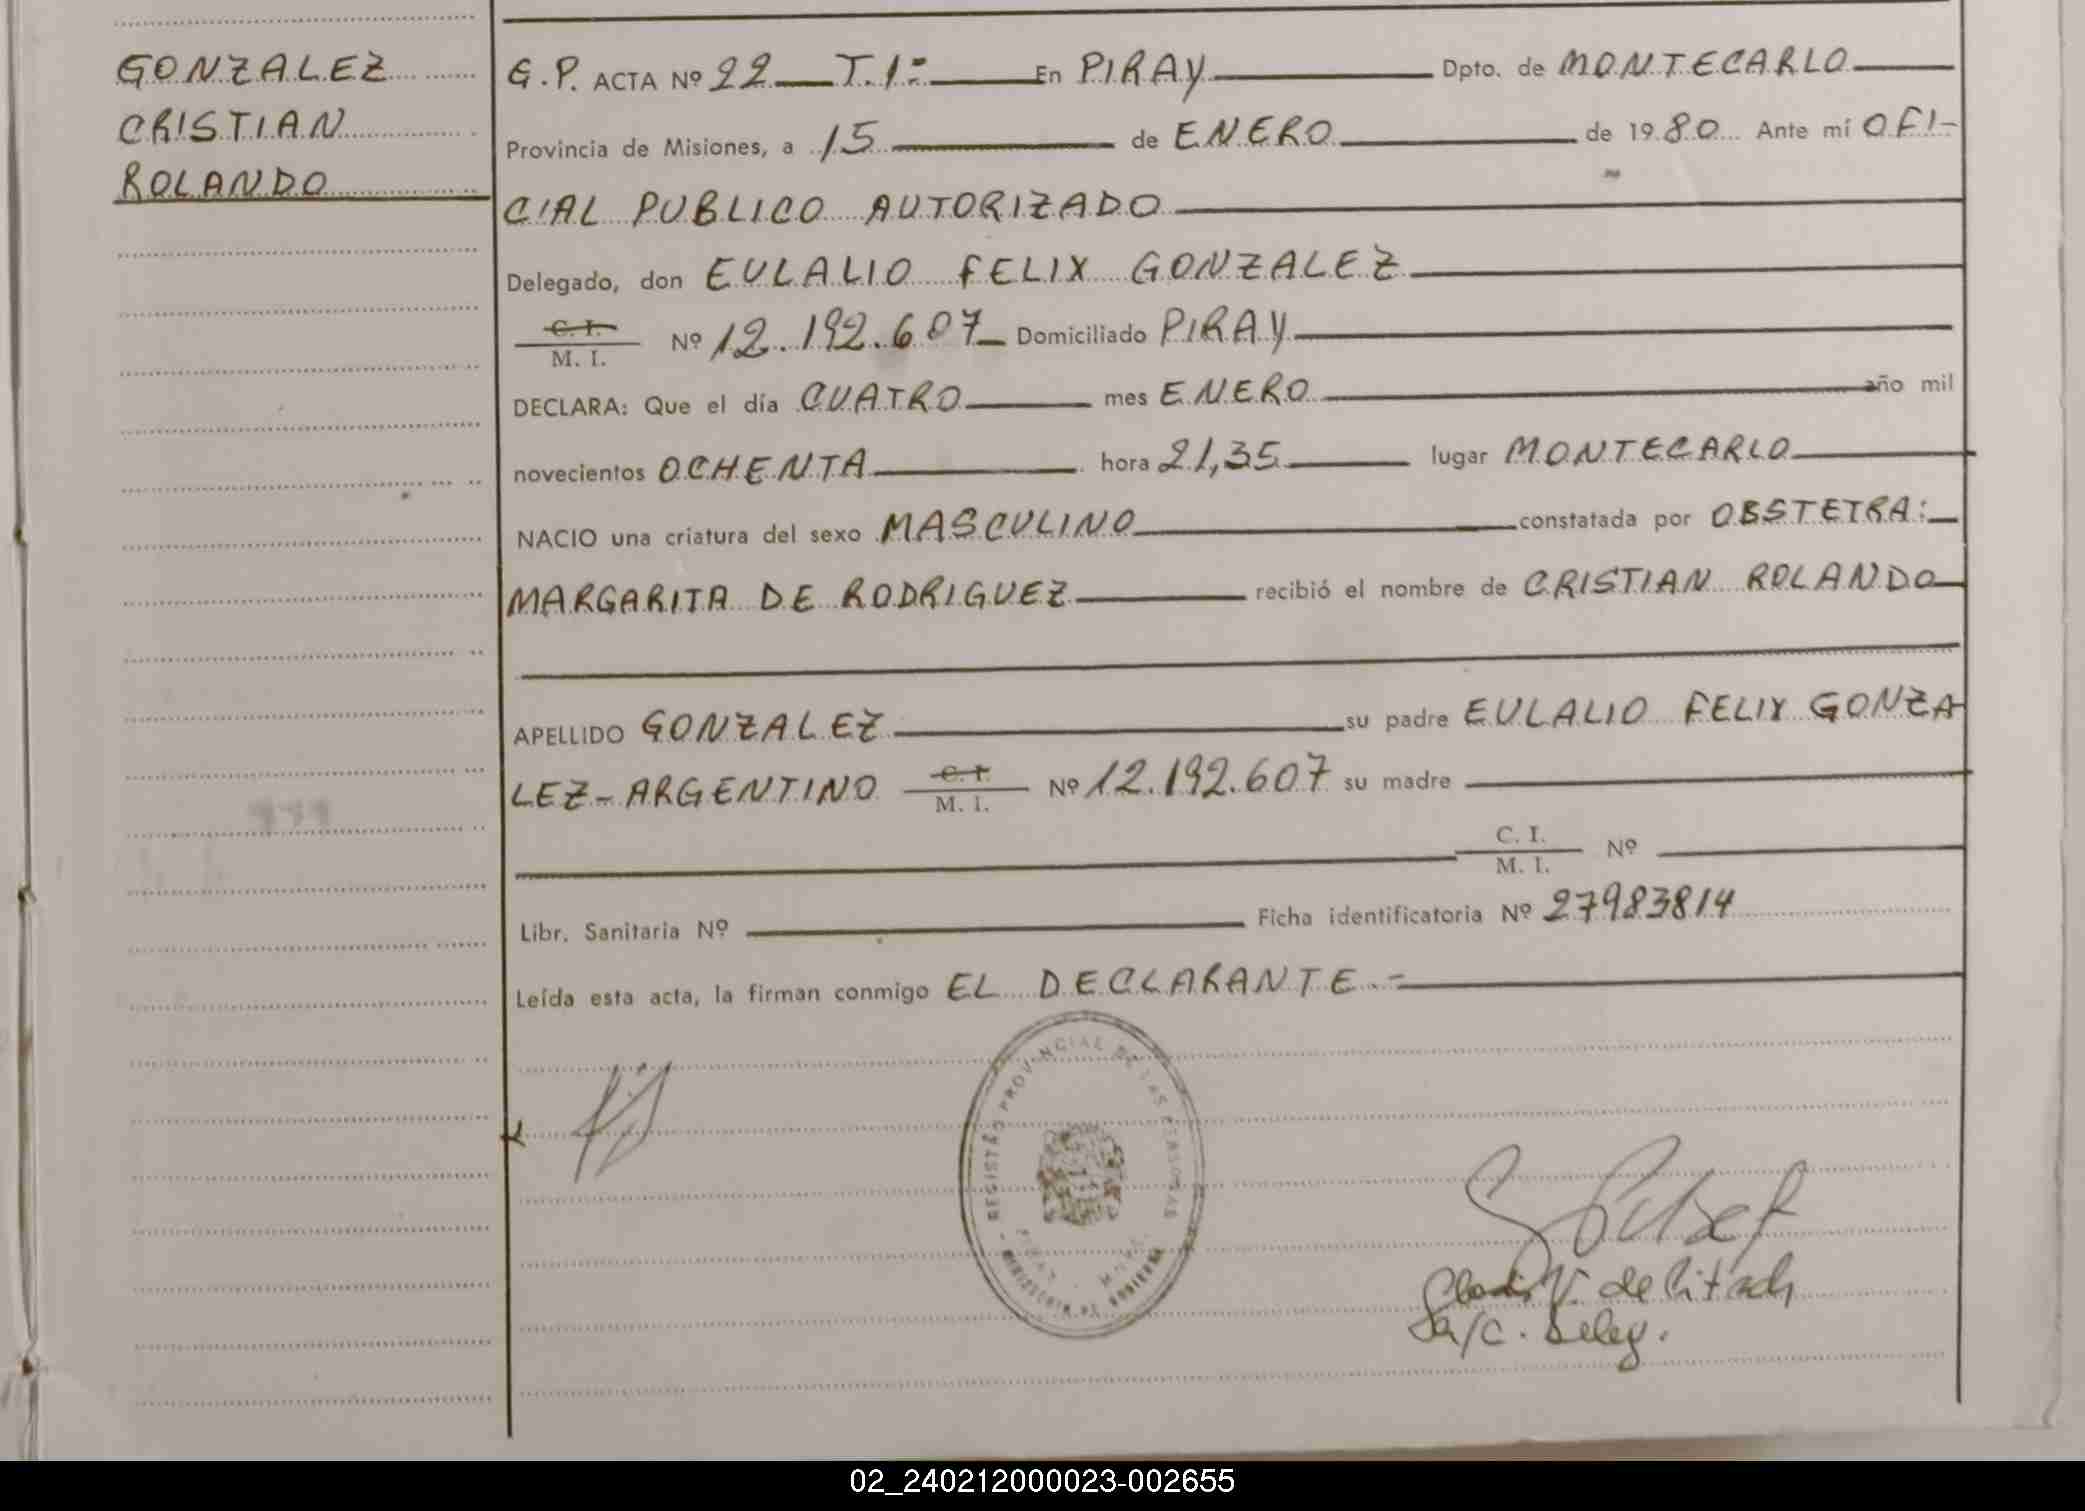 GONZALEZ
CRISTIAN
ROLANDO
G.P. ACTA Nº 22 T.1º En PIRAY Dpto. de MONTECARLO
Provincia de Misiones, a 15 de ENERO de 1980 Ante mí OFI-
CIAL PUBLICO AUTORIZADO
Delegado, don EULALIO FELIX GONZALEZ
C. I.
M. I. Nº 12.192.607 Domiciliado PIRAY
DECLARA: Que el día CUATRO mes ENERO año mil
novecientos OCHENTA hora 21,35 lugar MONTECARLO
NACIO una criatura del sexo MASCULINO constatada por OBSTETRA:
MARGARITA DE RODRIGUEZ recibió el nombre de CRISTIAN ROLANDO
APELLIDO GONZALEZ su padre EULALIO FELIX GONZA
LEZ-ARGENTINO C. I. M. I. Nº 12.192.607 su madre
C. I.
M. I. Nº
Libr. Sanitaria Nº Ficha identificatoria Nº 27983814
Leída esta acta, la firman conmigo EL DECLARANTE.-
REGISTRO PROVINCIAL DE LAS PERSONAS
MINISTERIO DE GOBIERNO
V. de
a/c. Deleg.
02_240212000023-002655